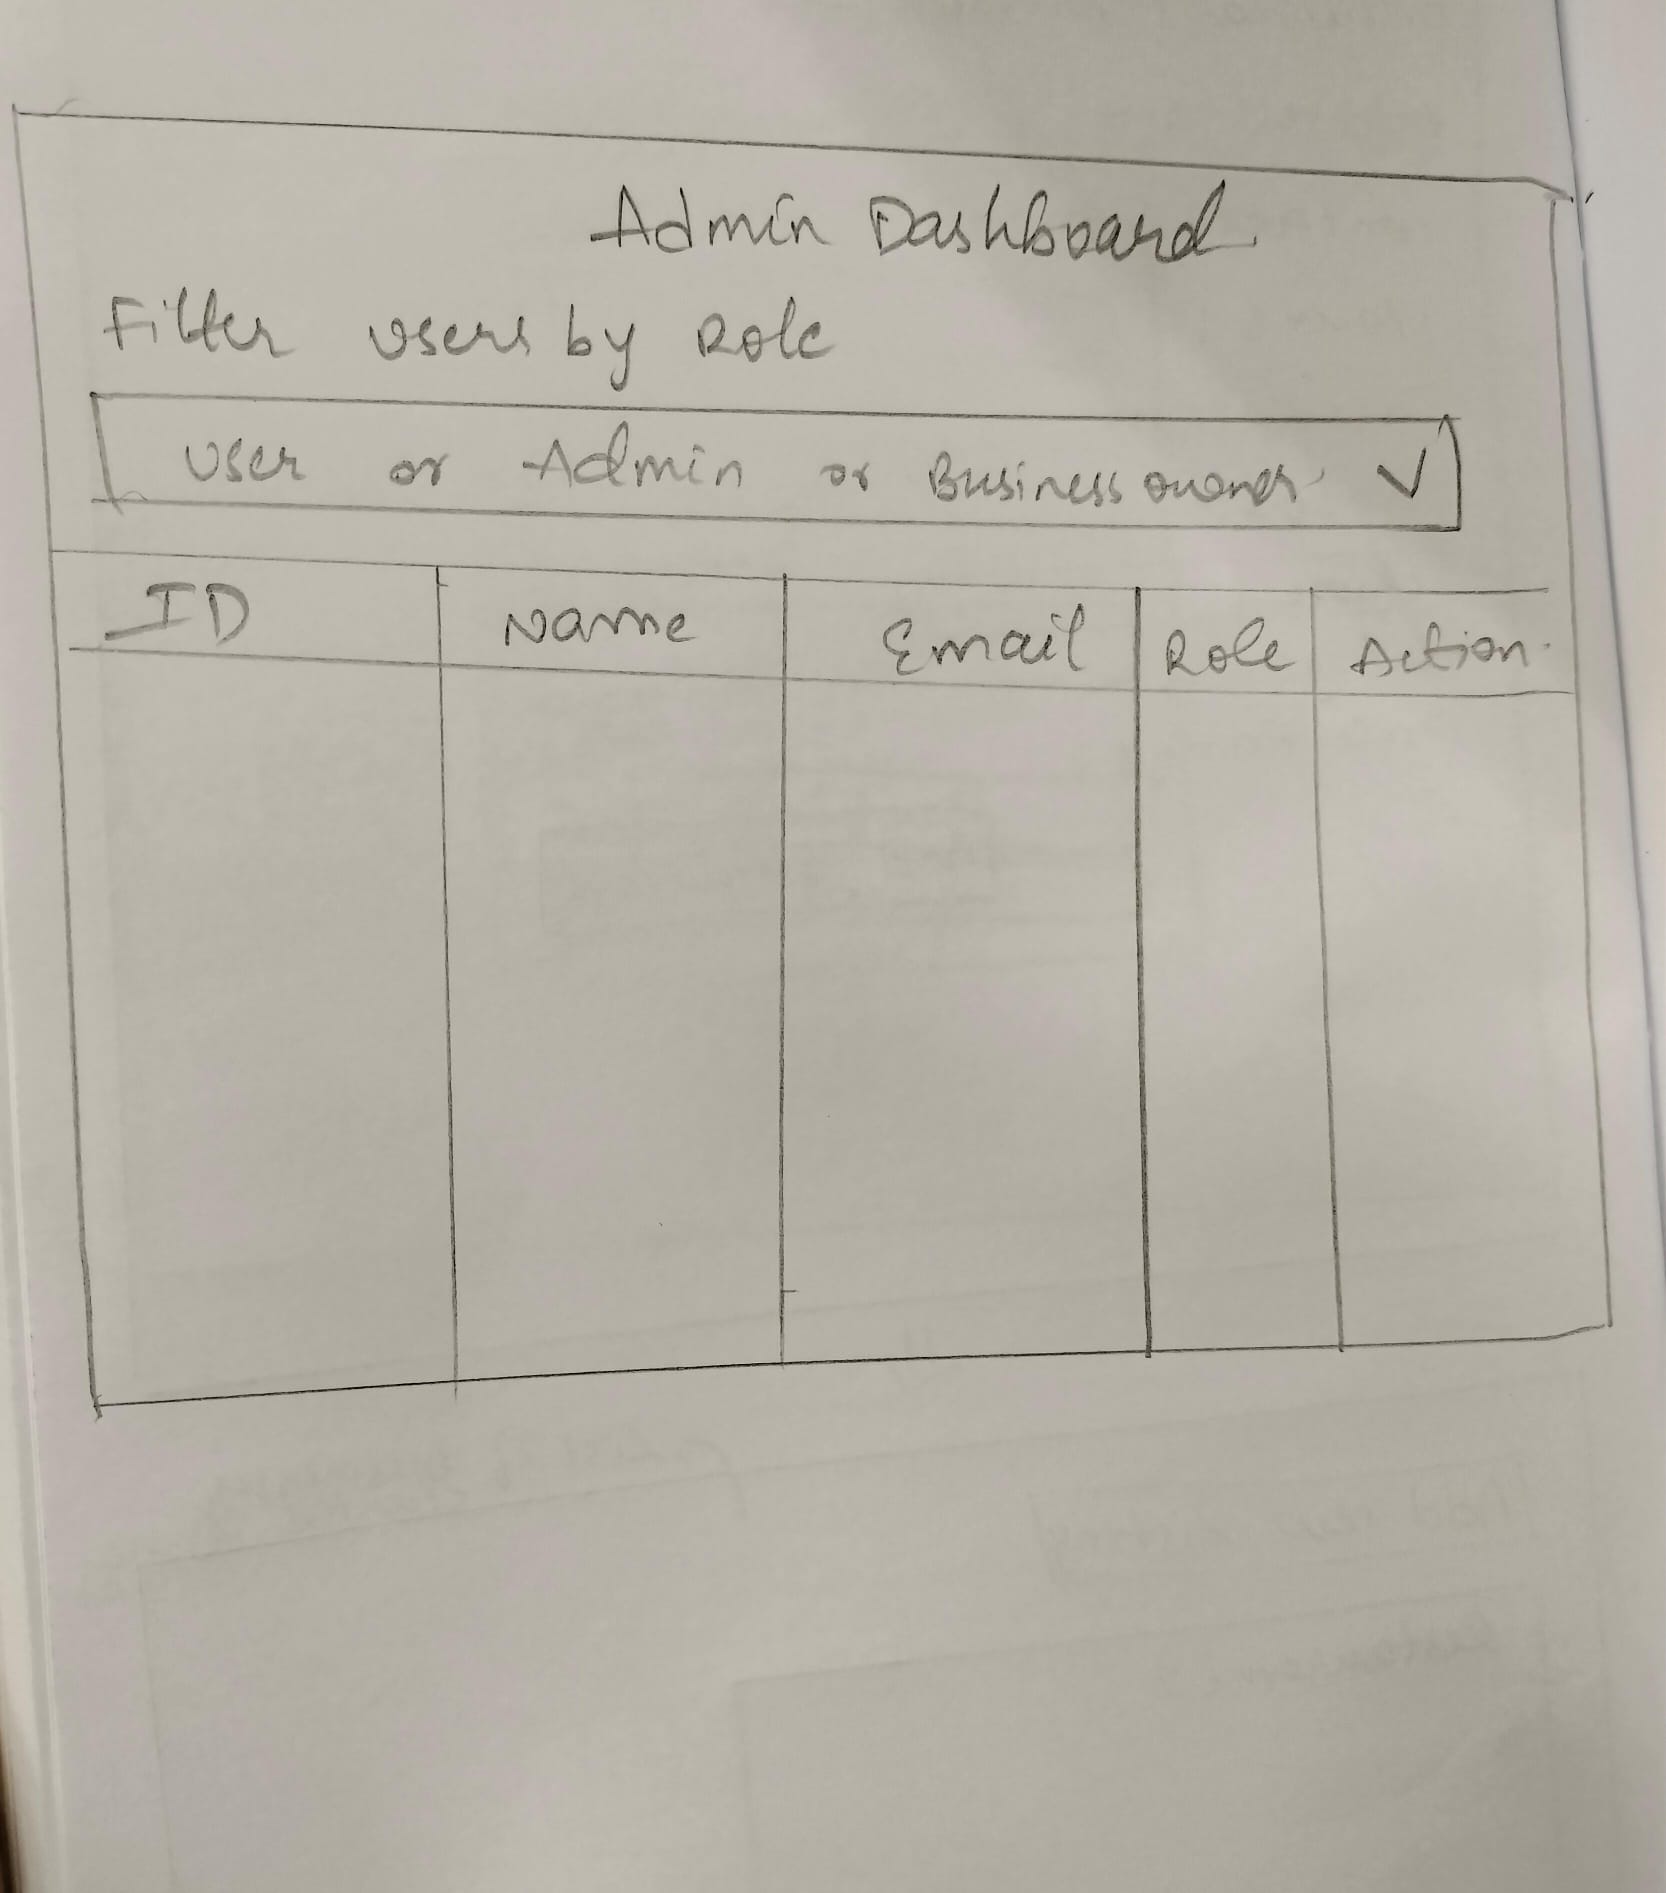 Admin Dashboard.
Filter users by Role
User or Admin or Business owner
ID Name Email Role Action.